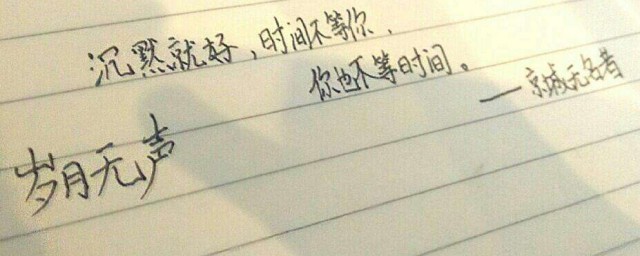 沉默就好，时间不等你，
你也不等时间。
——京城无名者
岁月无声